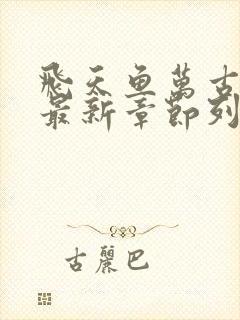 飛天魚萬古
最新章節列
古麗巴